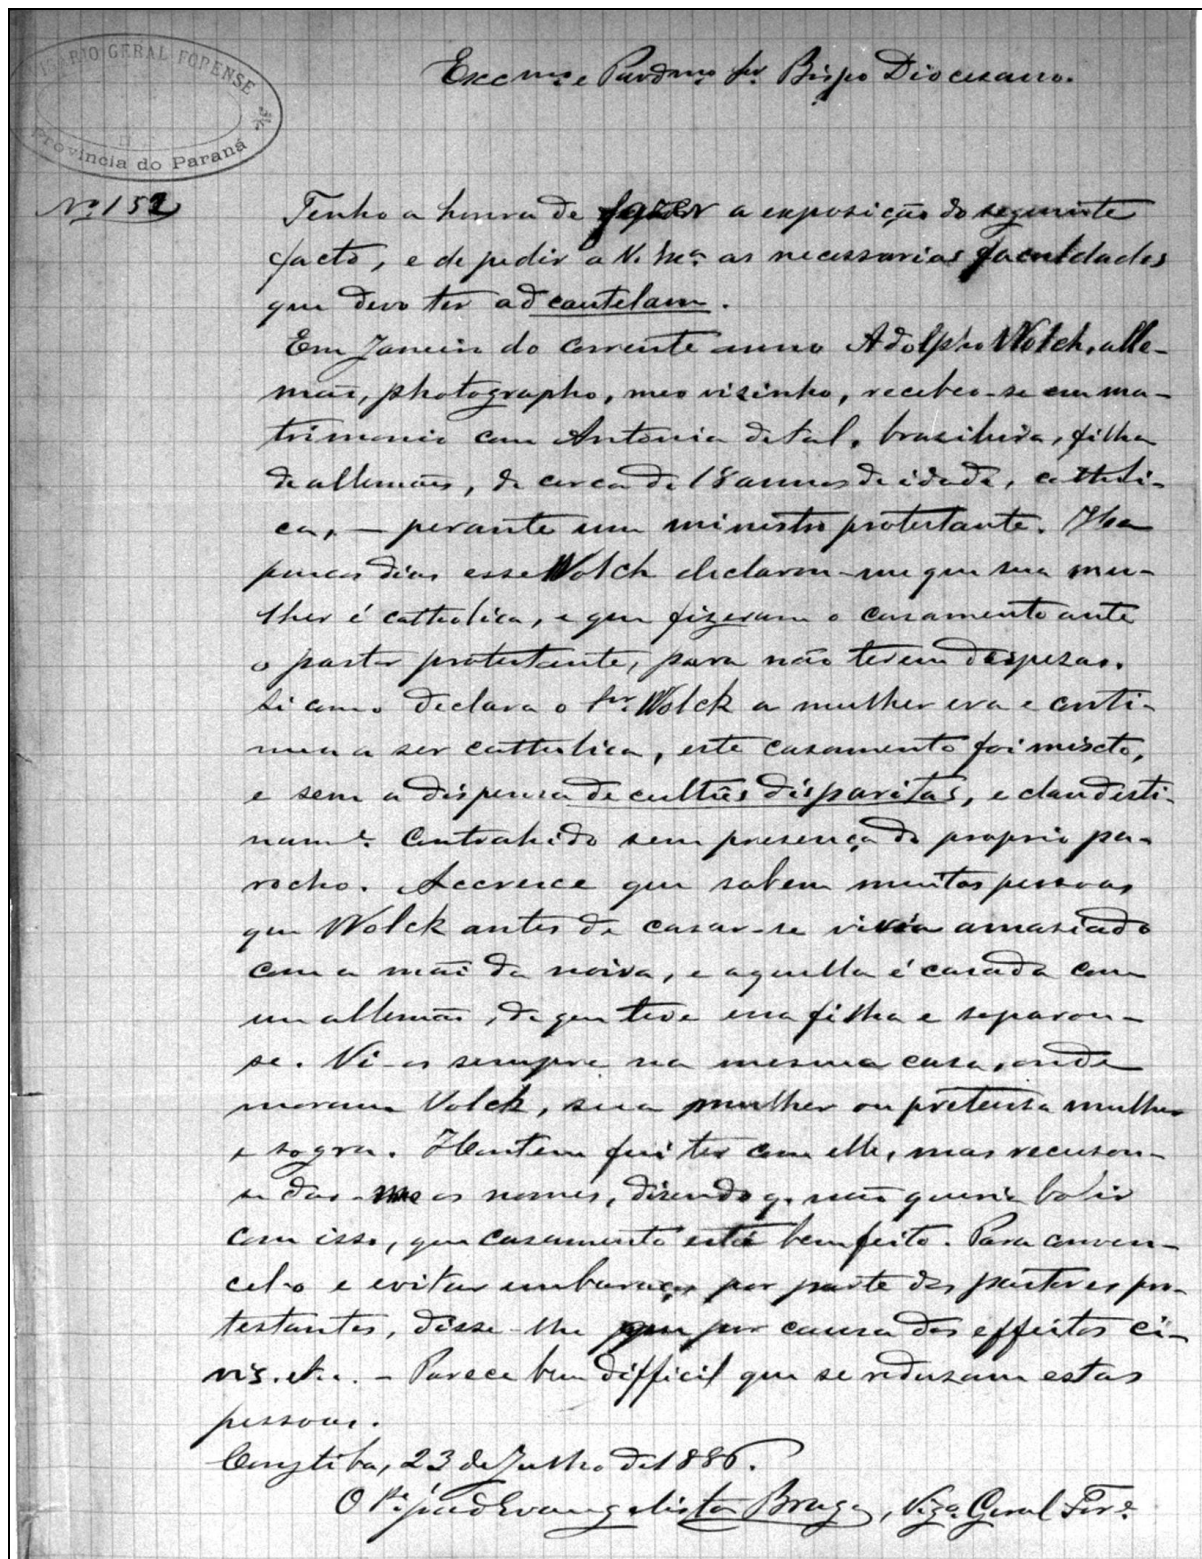 VIGARIO GERAL FORENSE
Provincia do Paraná
Excmo e Revdmo Sr. Bispo Diocesano.
Nº 152
Tenho a honra de fazer a exposição do seguinte
facto, e de pedir a V. Exa. as necessarias faculdades
que devo ter ad cautelam.
Em Janeiro do corrente anno Adolpho Wolck, alle-
mão, photographo, meo visinho, recebeo-se em ma-
trimonio com Antonia de tal, brasileira, filha
de allemães, de cerca de 18 annos de idade, catholi-
ca, — perante um ministro protestante. Ha
poucos dias esse Wolck declarou-me que sua mu-
lher é catholica, e que fizeram o casamento ante
o pastor protestante, para não terem despezas.
Si como declara o Sr. Wolck a mulher era e conti-
nua a ser catholica, este casamento foi mixto,
e sem a dispensa de cultûs disparitas, e clandesti-
namte. contrahido sem presença do proprio pa-
rocho. Accresce que sabem muitas pessoas
que Wolck antes de casar-se vivia amasiado
com a mãi da noiva, e aquella é casada com
um allemão, de quem teve essa filha e separou-
se. Vi-os sempre na mesma casa, onde
moram Volck, sua mulher ou pretensa mulher
e sogra. Hontem fui ter com elle, mas recusou-
se dar-me os nomes, dizendo q. não queria bolir
com isso, que casamento está bem feito. Para conven-
cel-o e evitar embaraços por parte dos pastores pro-
testantes, disse-lhe que por causa dos effeitos ci-
vis. etc. - Parece bem difficil que se reduzam estas
pessoas.
Corytiba, 23 de Julho de 1886.
O Pe. João Evangelista Braga, Vigo. Geral Fore.